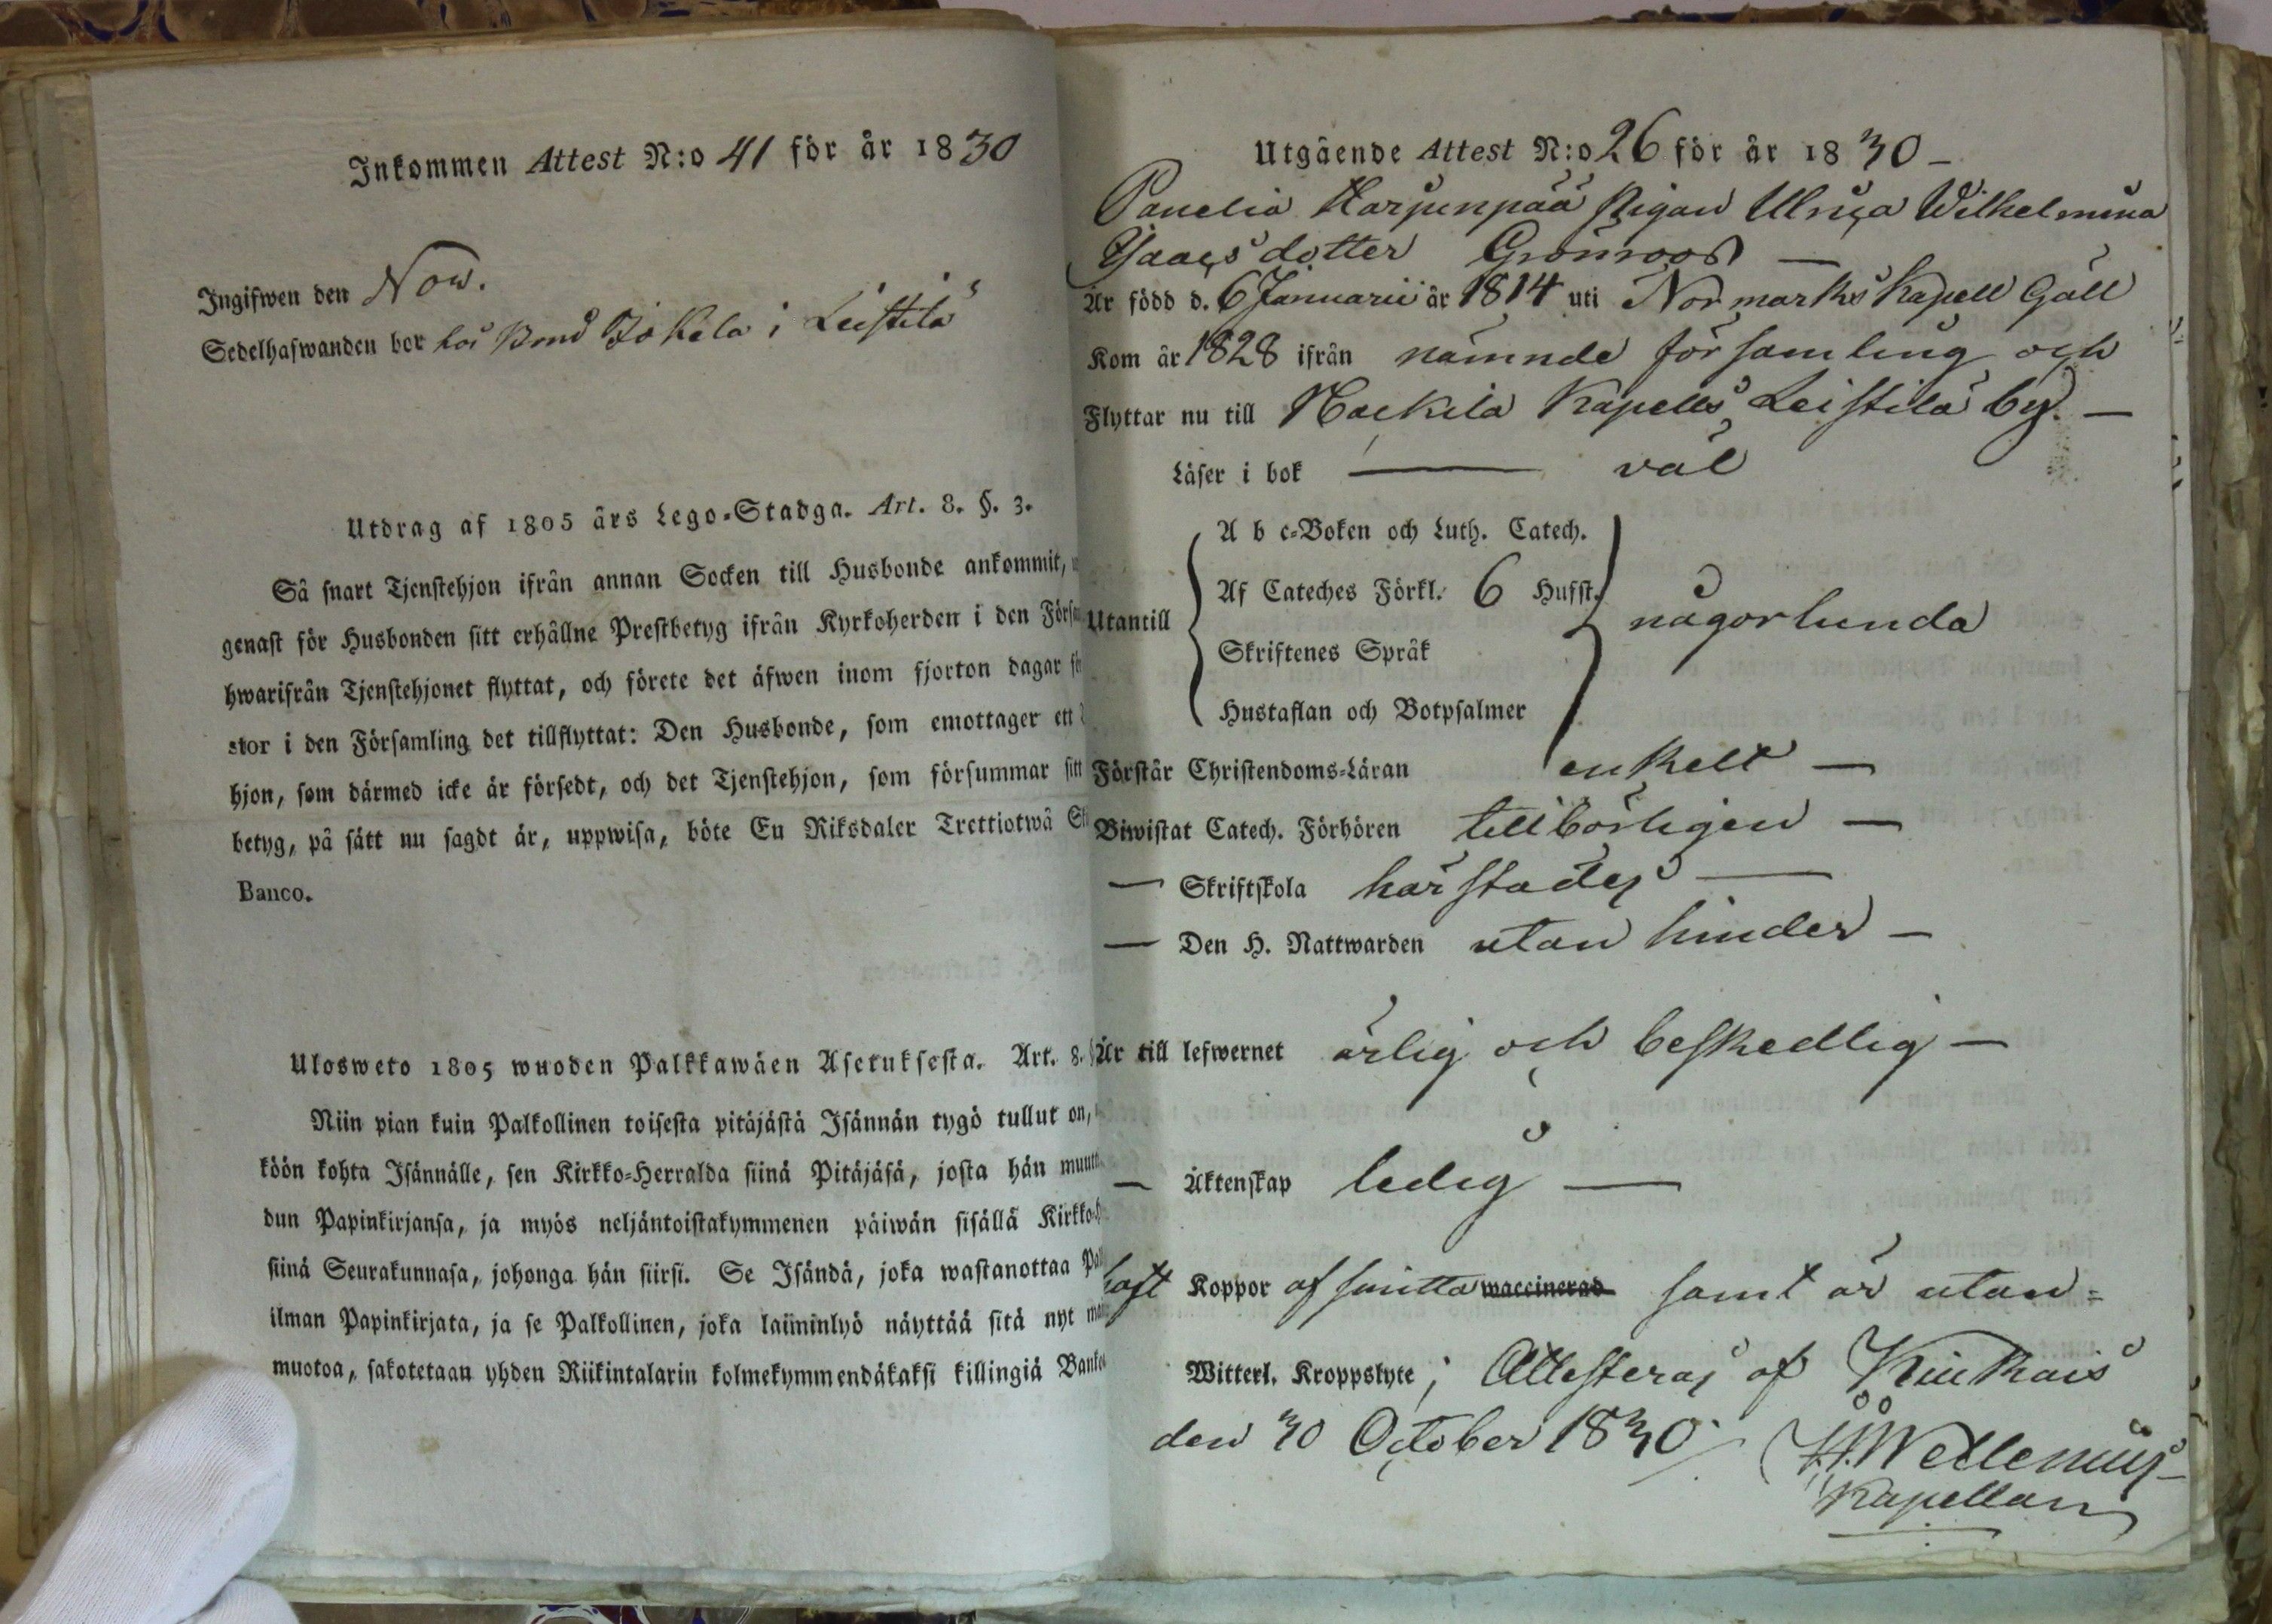 Inkommen Attest N:o 41 för år 1830
Ingifwen den Now.
Sedelhafwanden bor hos Bond Jokela i Leistilä
Utdrag af 1805 års Lego-Stadga. Art. 8. §. 3.
Så snart Tjenstehjon ifrån annan Socken till Husbonde ankommit,
genast för Husbonden sitt erhållne Prestbetyg ifrån Kyrkoherden i den Förs
hwarifrån Tjenstehjonet flyttat, och förete det äfwen inom fjorton dagar
stor i den Församling det tillflyttat: Den Husbonde, som emottager ett
hjon, som därmed icke är försedt, och det Tjenstehjon, som försummar sitt
betyg, på sätt nu sagdt är, uppwisa, böte En Riksdaler Trettiotwå
Banco.
Ulosweto 1805 wuoden Palkkawäen Asetuksesta. Art. 8.
Niin pian kuin Palkollinen toisesta pitäjästä Isännän tygö tullut on,
köön kohta Isännälle, sen Kirkko-Herralda siinä Pitäjäsä, josta hän muut
dun Papinkirjansa, ja myös neljäntoistakymmenen päiwän sisällä Kirkko
siinä Seurakunnasa, johonga hän siirsi. Se Isändä, joka wastanottaa Pal
ilman Papinkirjata, ja se Palkollinen, joka laiminlyö näyttää sitä nyt
muotoa, sakotetaan yhden Riikintalarin kolmekymmendäkaksi killingiä Banko
Utgående Attest N:o 26 för år 1830 -
Panelia Harjunpää Pigan Ulrica Wilhelmina
Isaacsdotter Grönroos —
Är född d. 6 Januarii år 1814 uti Normarks Kapell Gäll
Kom år 1828 ifrån nämnde församling och
Flyttar nu till Nackila Kapells Leistilä by. —
Läser i bok — väl
A b c-Boken och Luth. Catech.
Af Cateches Förkl. 6 Hufst.
Utantill någorlunda
Skriftenes Språk
Hustaflan och Botpsalmer
Förstår Christendoms-Läran enkelt —
Biwistat Catech. Förhören tillbörligen —
— Skriftskola härstädes —
— Den H. Nattwarden utan hinder —
Är till lefwernet ärlig och beskedlig —
— Äktenskap ledig —
haft Koppor af smitta waccinerad samt är utan=
Witterl. Kroppslyte; Attesteras af Kiukais
den 30 October 1830
Wellenius
Kapellan